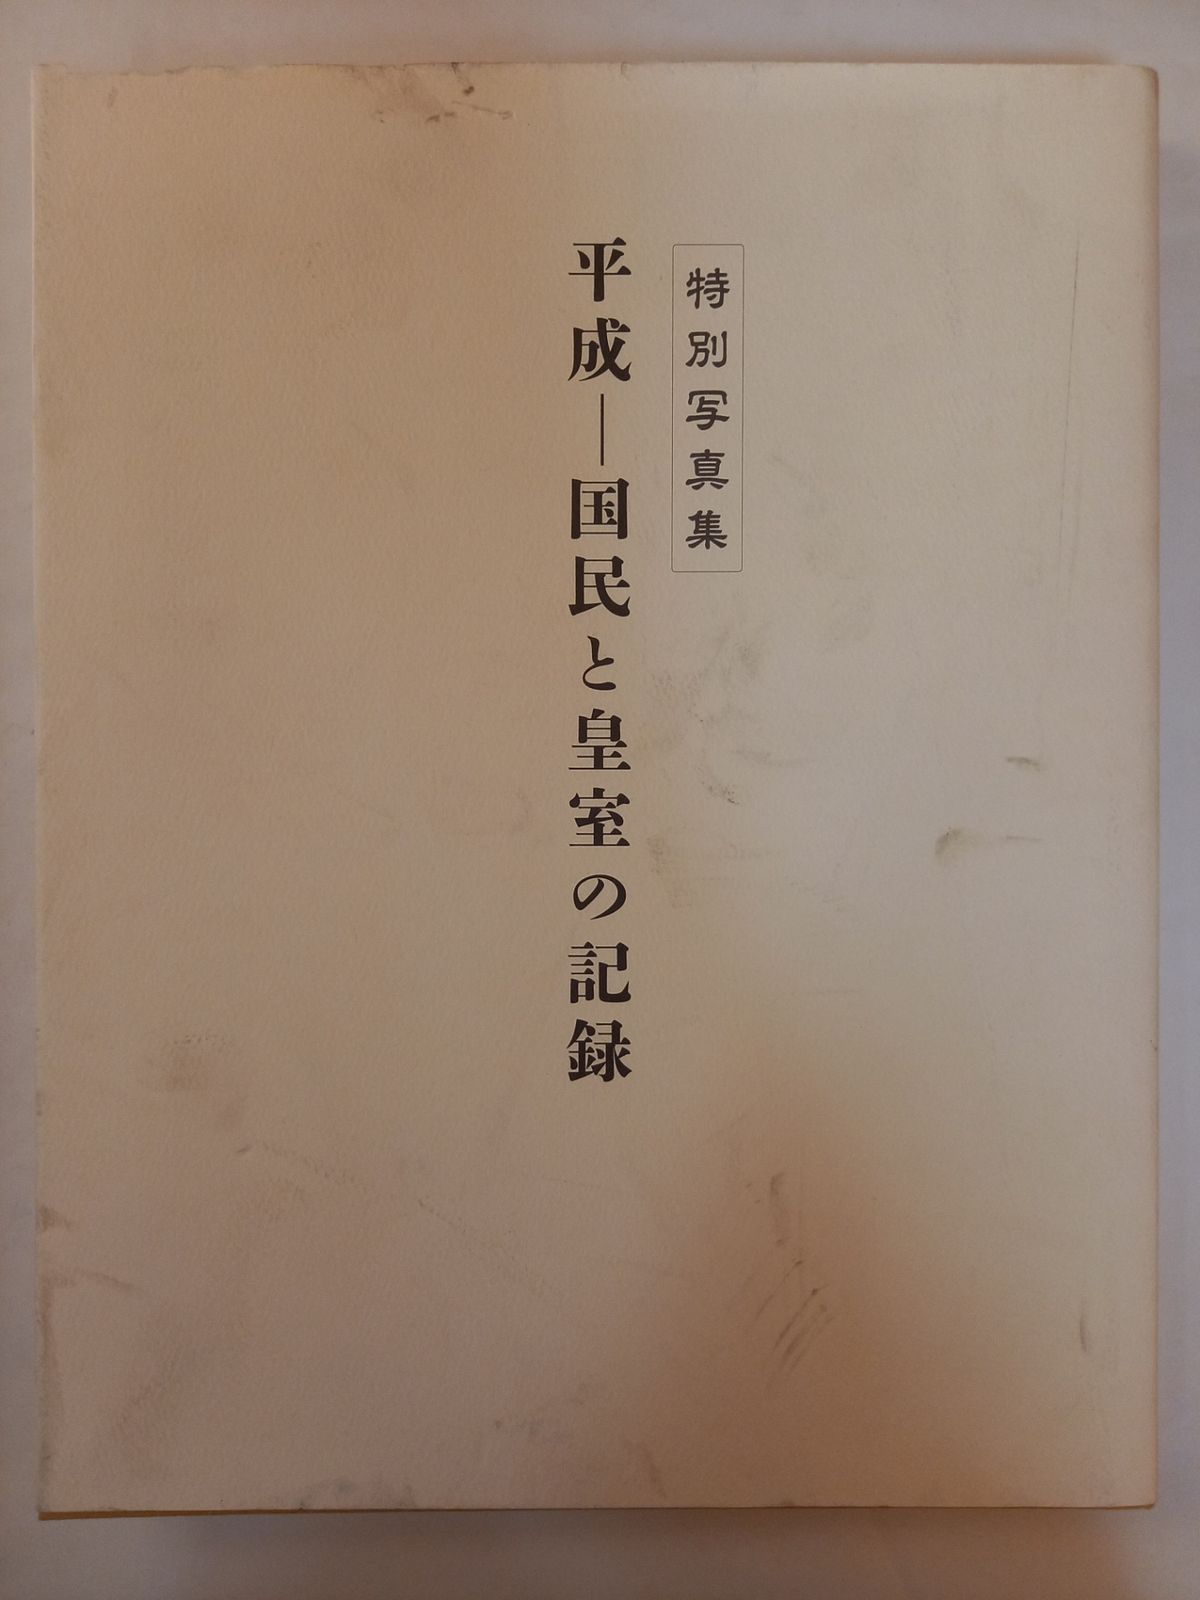 特別写真集
平成―国民と皇室の記録